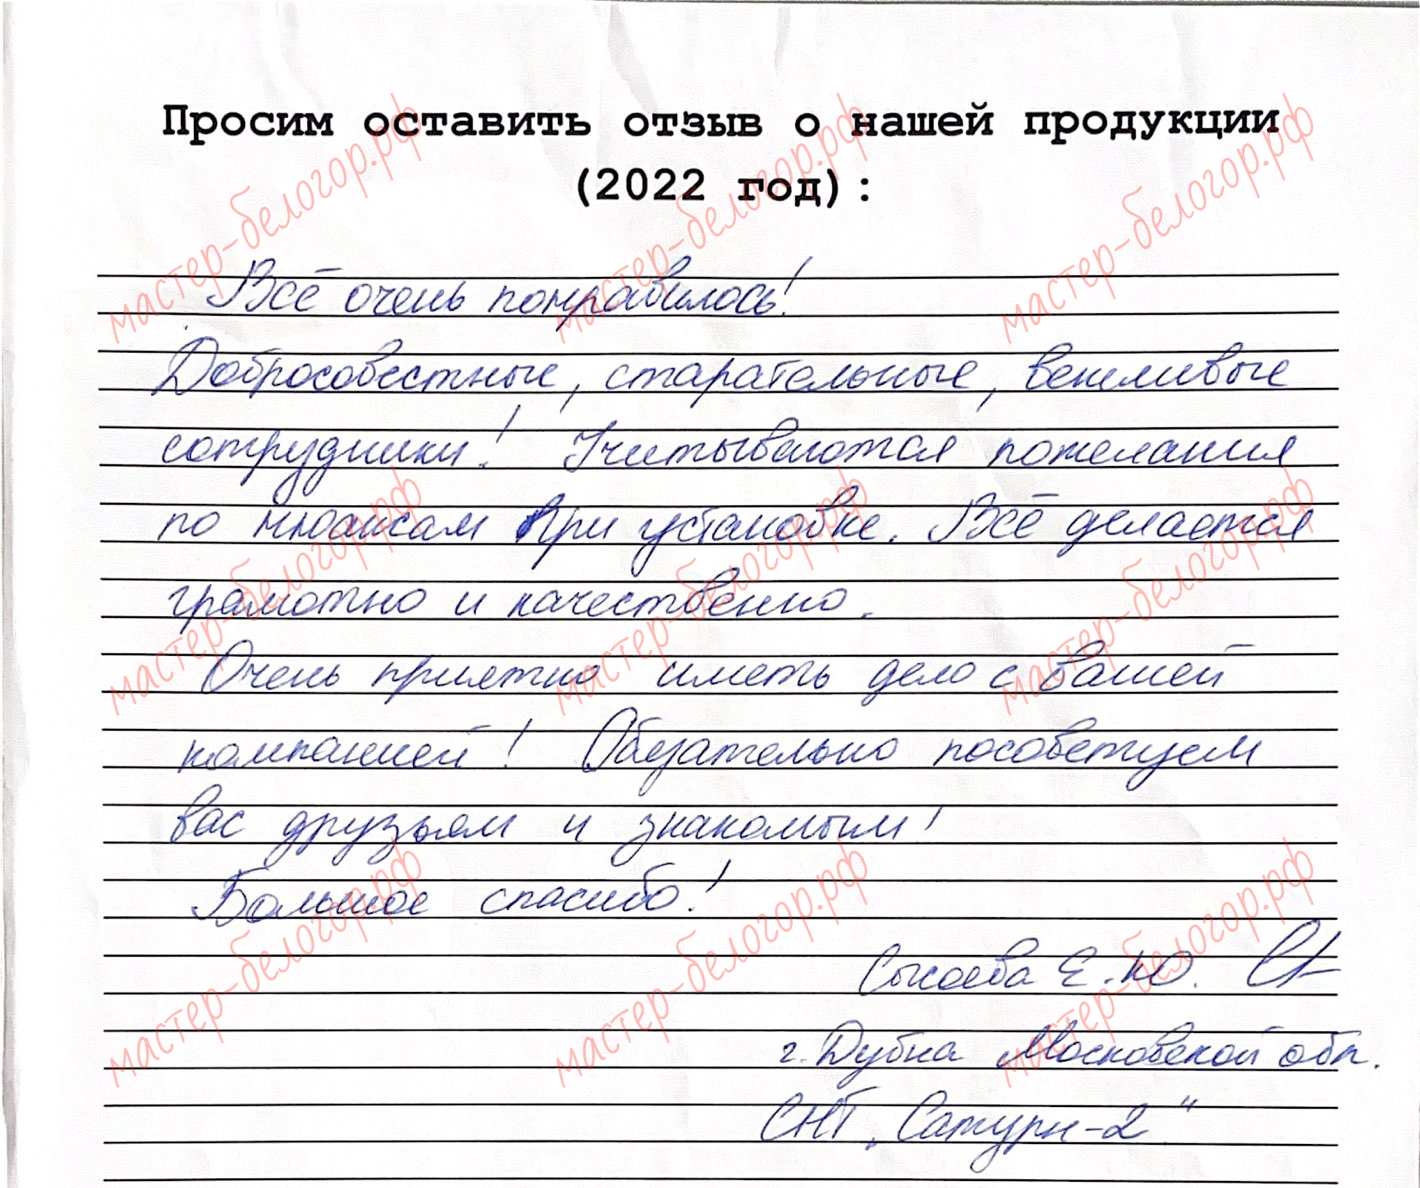 Просим оставить отзыв о нашей продукции
(2022 год):
Всё очень понравилось!
Добросовестные, старательные, вежливые
сотрудники! Учитываются пожелания
по нюансам при установке. Всё делается
грамотно и качественно.
Очень приятно иметь дело с вашей
компанией! Обязательно посоветуем
вас друзьям и знакомым!
Большое спасибо!
Е.Ю.
г. Дубна Московской обл.
СНТ „Сатурн-2"
мастер-белогор.рф мастер-белогор.рф мастер-белогор.рф
мастер-белогор.рф мастер-белогор.рф мастер-белогор.рф
мастер-белогор.рф мастер-белогор.рф мастер-белогор.рф